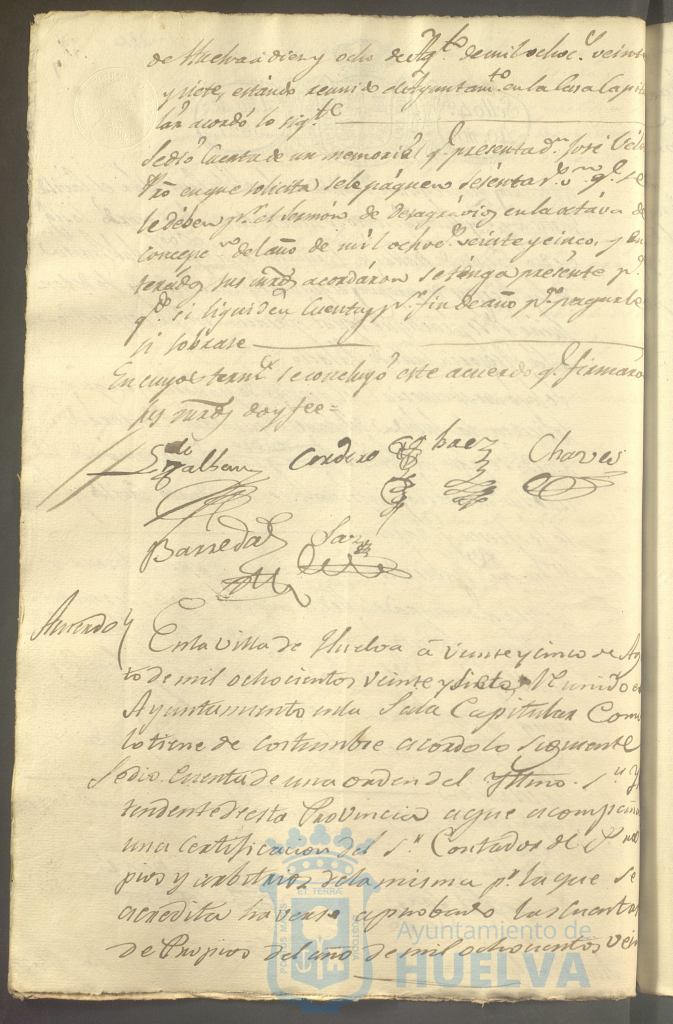 de Huelva á diez y ocho de Ag.to de mil ochoc.s veinte
y siete, estando reunido el Ayuntam.to en la Casa Capit
lar acordó lo sig.te
Se dió Cuenta de un memorial q.e presenta d.n José Véla
en que solicita se le páguen sesenta r.s v.n q.e se
le dében p.r el sermón de Desagrávios en la octáva de
Concepc.on del año de mil ochoc.s veinte y cinco, y en
terádos sus mrds acordáron se ténga presénte p.a
q.do si liquiden Cuentas p.r fin de año p.a pagarle
si sobrase
En cuyos term.s se concluyó este acuerdo q.e firmáron
sus mrds doy fee =
Cordero baez Chaves
Barreda
Acuerdo
En la villa de Huelva á veinte y cinco de Ag
to de mil ochocientos veinte y siete, Reunido el
Ayuntamiento en la Sala Capitular Como
lo tiene de costumbre acordo lo siguiente
Se dio Cuenta de una orden del Yltmo. S.r Yn
tendente de esta Provincia a que acompaña
una Certificacion del S.r Contador de Pro
pios y arbitrios de la misma p.r la que se
acredita haverse aprobado las Cuentas
de Propios del año de mil ochocientos vein
PORTUS MARIS
ET TERRÆ
CUSTODIA
Ayuntamiento de
HUELVA